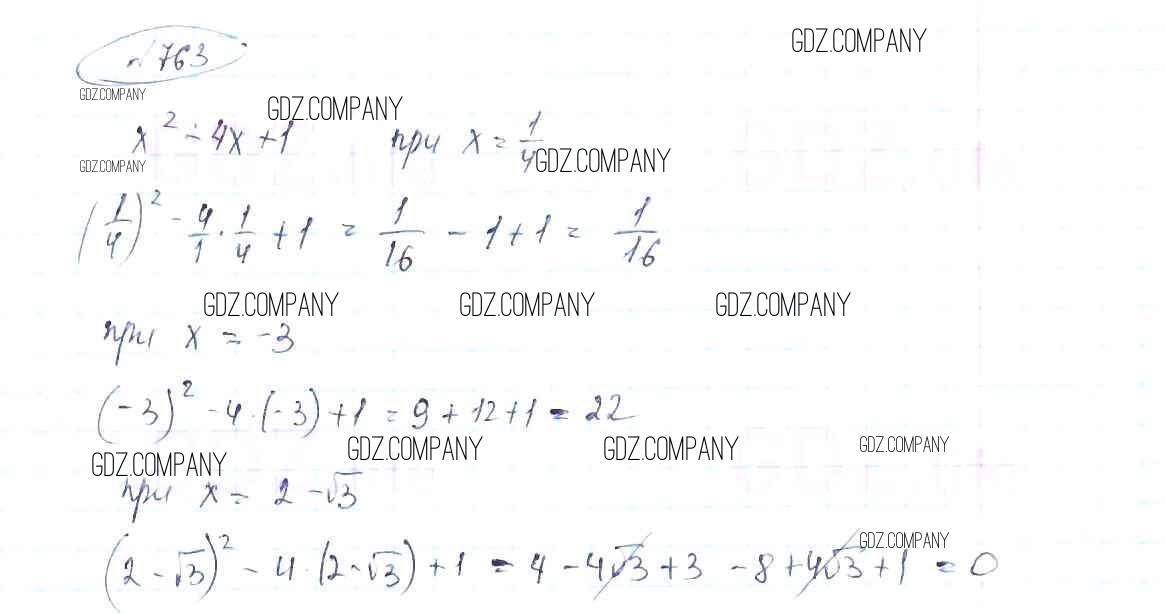 № 763
GDZ.COMPANY
GDZ.COMPANY
GDZ.COMPANY
x² - 4x + 1 при x = 1/4
GDZ.COMPANY
GDZ.COMPANY
(1/4)² - 4/1 · 1/4 + 1 = 1/16 - 1 + 1 = 1/16
GDZ.COMPANY GDZ.COMPANY GDZ.COMPANY
при x = -3
(-3)² - 4 · (-3) + 1 = 9 + 12 + 1 = 22
GDZ.COMPANY GDZ.COMPANY GDZ.COMPANY GDZ.COMPANY
при x = 2 - √3
GDZ.COMPANY
(2 - √3)² - 4 · (2 - √3) + 1 = 4 - 4√3 + 3 - 8 + 4√3 + 1 = 0